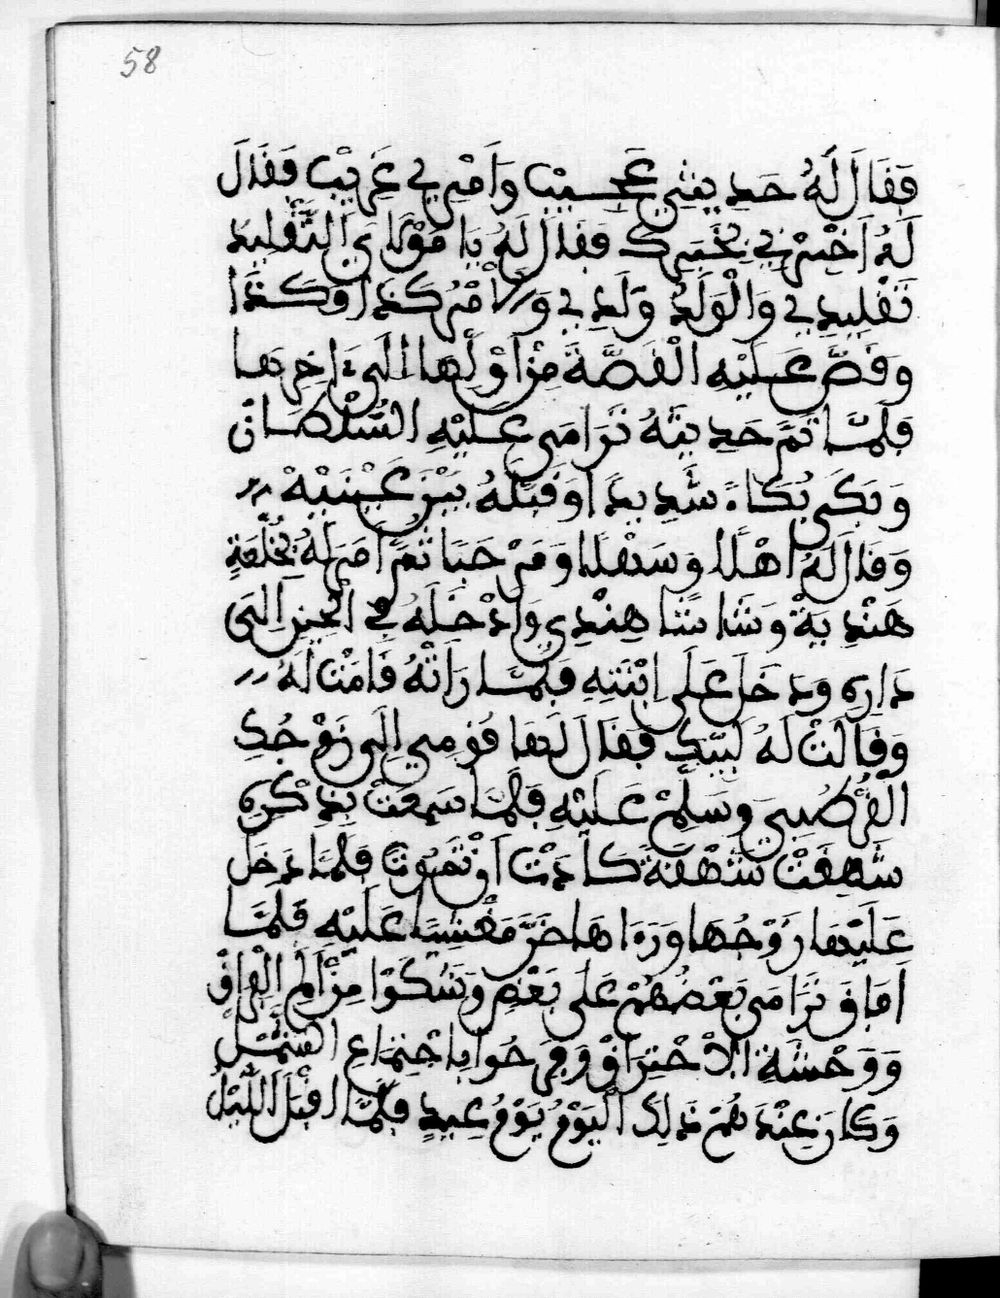 58
فَقَالَ لَهُ حَدِيثِي عَجِيبْ وَاَمْرِي غَرِيبْ فَقَالَ
لَهُ اَخْبِرْنِي بِخَبَرِكَ فَقَالَ لَهُ يَا مَوْلَاىَ التَّقْلِيدَ
تَقْلِيدِي وَالْوَلَدُ وَلَدِي وَالاَمْرُ كَذَا وَكَذَا
وَقَصَّ عَلَيْهِ الْقَصَّةَ مِنْ اَوَّلِهَا اِلَى ءَاخِرِهَا
فَلَمَّا تَمَّ حَدِيثَهُ تَرَامَى عَلَيْهِ السُّلْطَانْ
وَبَكَى بُكَاءً شَدِيدَا وَقَبَّلَهُ بَيْنَ عَيْنَيْهْ
وَقَالَ لَهُ اَهْلًا وَسَهْلًا وَمَرْحَبَا ثُمَّ اَمَرَ لَهُ بِخُلْعَةٍ
هِنْدِيَةْ وَشَاشًا هِنْدِي وَادْخَلَهُ فِى الْحِينِ اِلَى
دَارِهِ وَدَخَلَ عَلَى ابْنَتِهِ فَلَمَّا رَاَتْهُ قَامَتْ لَهُ
وَقَالَتْ لَهُ لَبَّيْكَ فَقَالَ لَهَا قُومِي اِلَى زَوْجُكِ
الْقُرْطُبِيَ وَسَلِّمْ عَلَيْهِ فَلَمَّا سَمِعَتْ بِذِكْرِهِ
شَهِقَتْ شَهْقَةً كَادَتْ اَنْ تَمُوتَ فَلَمَّا دَخَلَ
عَلَيْهَا زَوْجُهَا وَرَءَاهَا خَرَّ مَغْشِيًا عَلَيْهِ فَلَمَّا
اَفَاقَ تَرَامَى بَعْضُهُمْ عَلَى بَعْضٍ وَتَشَكَّوْا مِنْ اَلَمِ الْفِرَاقْ
وَوَحْشَةِ الاحْتِرَاقْ وَفَرِحُوا بِاجْتِمَاعِ الشَّمْلِ
وَكَانَ عِنْدَهُمْ ذَلِكَ الْيَوْمُ يَوْمُ عِيدٍ فَلَمَّا اَقْبَلَ اللَّيْلُ